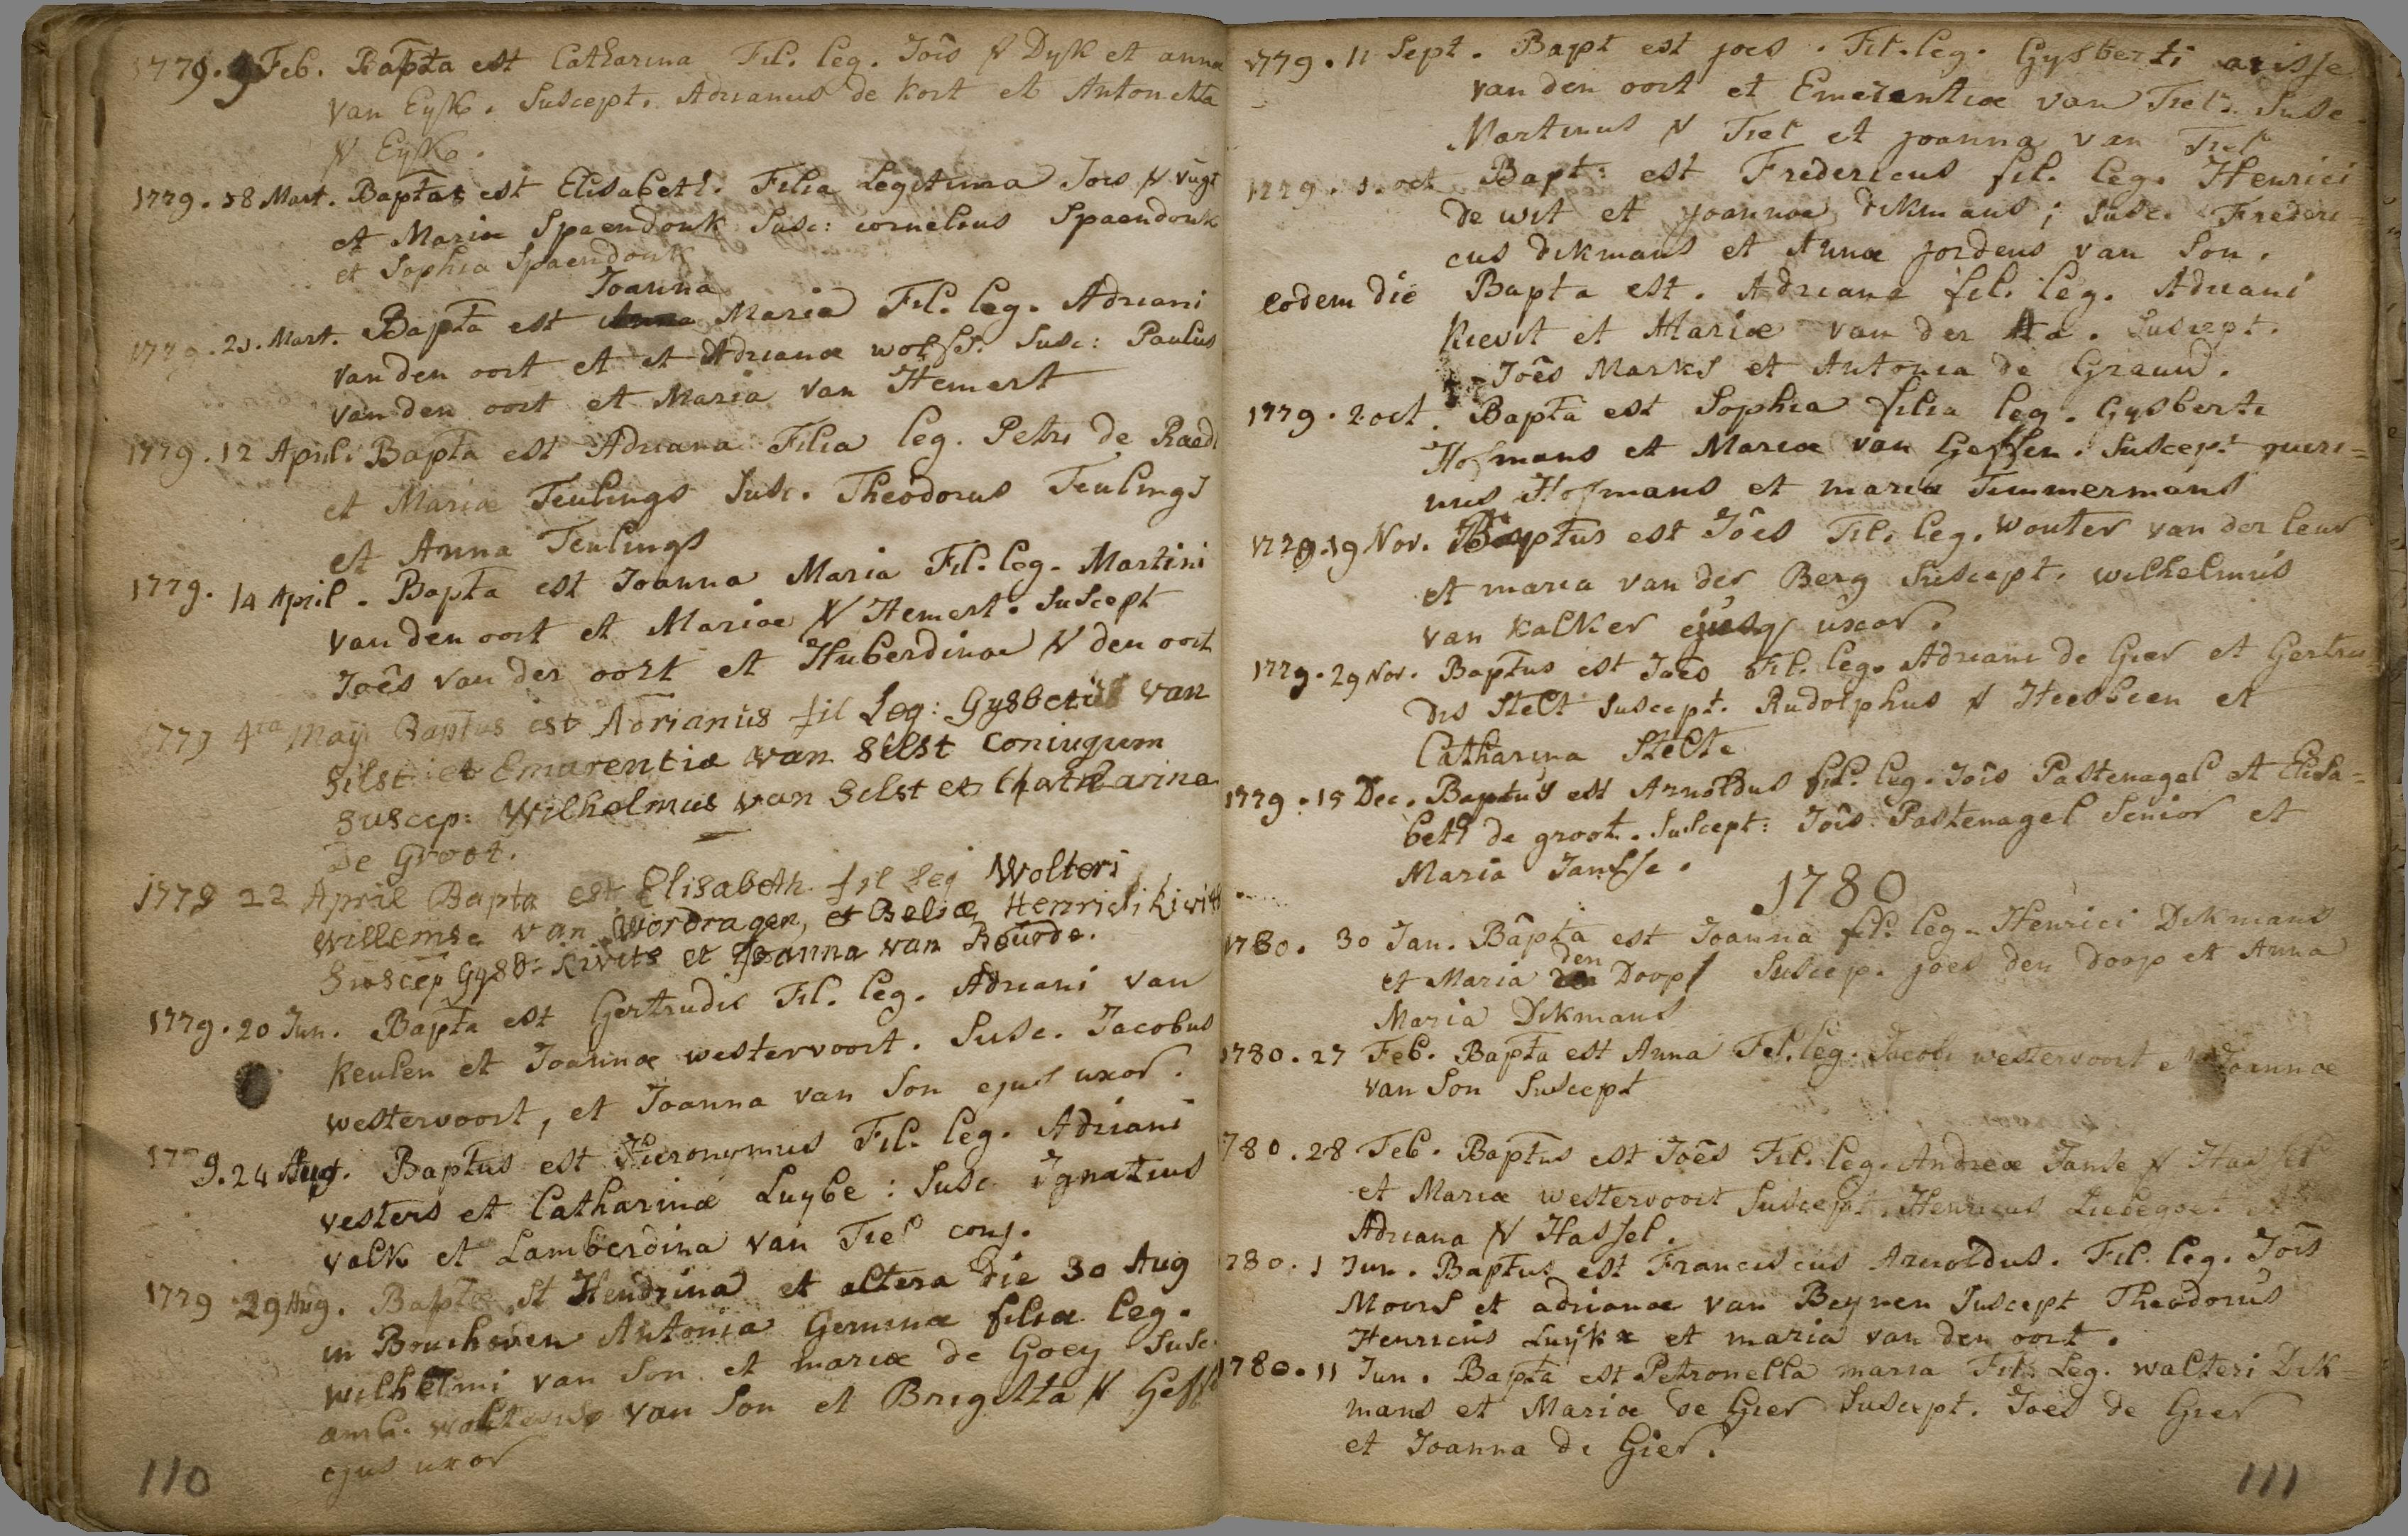 1779. 9 Feb. Bapta est Catharina Fil. leg. Jois V Dyk et anna
van Eyk. Suscept. Adrianus de kort et Antonetta
V Eyke.
1779. 18 Mart. Baptas est Elisabeth. Filia Legitima Jois V vugt
et Mariæ Spaendonk Susc: cornelius Spaendonk
et Sophia Spaendonk
Joanna
1779. 21. Mart. Bapta est Anna Maria Fil. leg. Adriani
van den oort et et Adrianæ wolfs. Susc: Paulus
van den oort et Maria van Hemert
1779. 12 Aprili Bapta est Adriana Filia leg. Petri de Raedt
et Mariæ Teulings Susc. Theodorus Teulings
et Anna Teulings
1779. 14 April. Bapta est Joanna Maria Fil. leg. Martini
van den oort et Mariæ V Hemert. Suscept
Joês van der oort et Huberdinæ V den oort
1779 4ta Maÿ Baptus est Adrianus fil Leg: Gysberti van
Silst et Emerentiæ van Silst Coniugum
Suscep: Wilhelmus van Silst et Chatharina
De Groot.
1779 22 April Bapta est Elisabeth fil Leg Wolteri
Willemse van Wordragen, et Beliæ Henrici kivits
Suscep Gysb: Kivits et Joanna van Beurde.
1779. 20 Jun. Bapta est Gertrudis Fil. leg. Adriani van
Keulen et Joannæ westervoort. Susc. Jacobus
westervoort, et Joanna van Son ejus uxor.
1779. 24 Aug. Baptus est Hieronymus Fil. leg. Adriani
vesters et Catharinæ Luybe: Susc Ignatius
valk et Lamberdina van Tiel conj.
1779 29 Aug. Bapta st Hendrina et altera die 30 Aug
in Bouchoven Antonia Geminæ filiæ leg.
Wilhelmi van Son et mariæ de Goey Susc.
amb. van Son et Brigitta V Geff
ejus uxor
110
1779. 11 Sept. Bapt est joes. Fil. leg. Gysberti arisse
van den oort et Emerentiæ van Tiel. Susc.
Martinus V Tiel et joanna van Tiel
1779. 1. oct Bapt: est Fredericus fil. leg. Henrici
de wit et joannæ dikmans; Susc. Frederi=
cus dikmans et Anna jordens van Son.
eodem die Bapta est. Adriana fil. leg. Adriani
Kievit et Mariæ van der Aa. Suscept.
Joês Marks et Antonia de Graauw.
1779. 2 oct. Bapta est Sophia filia leg. Gysberti
Hofmans et Mariæ van Geffen. Suscept quiri=
nus Hofmans et maria Timmermans
1779. 19 Nov. Baptus est Joês Fil. leg. Wouter van der leur
et maria van der Berg Suscept. wilhelmus
van kalker ejusq uxor.
1779. 29 Nov. Baptus est Joês Fil. leg. Adriani de Gier et Gertru
dis Stelt Suscept. Rudolphus V Heesbeen et
Catharina Stelt.
1779. 15 Dec. Baptus est Arnoldus fil. leg. Jois Pastenagel et Elisa=
beth de groot. Suscept: Jois Pastenagel Senior et
Maria Jansse.
1780
1780. 30 Jan. Bapta est Joanna fil. leg. Henrici Dikmans
den
et Maria de Doop Suscep. joes den doop et Anna
Maria Dikmans
1780. 27 Feb. Bapta est Anna Fil. leg. Jacobi westervoort et Joannæ
van Son Suscept
1780. 28 Feb. Baptus est Joês Fil. leg. Andreæ Janse V Hassel
et Mariæ westervoort Suscept. Henricus et
Adriana V Hassel.
1780. 1 Jun. Baptus est Franciscus Arnoldus. Fil. leg. Jois
Moors et adrianæ van Beynen Suscept Theodorus
Henricus Luijkx et maria van den oort.
1780. 11 Jun. Bapta est Petronella maria Fil. Leg. walteri Dik=
mans et Mariæ de Gier Suscept. Joes de Gier
et Joanna de Gier.
111